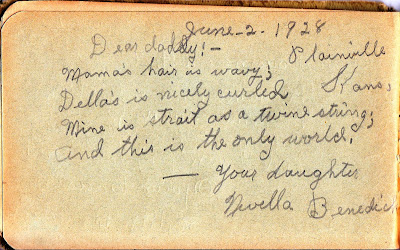 June - 2. - 1928
Dear daddy! - Plainville
Mama's hair is wavy; Kans,
Della's is nicely curled
Mine is strait as a twine string;
And this is the only world!
— Your daughter
Benedict